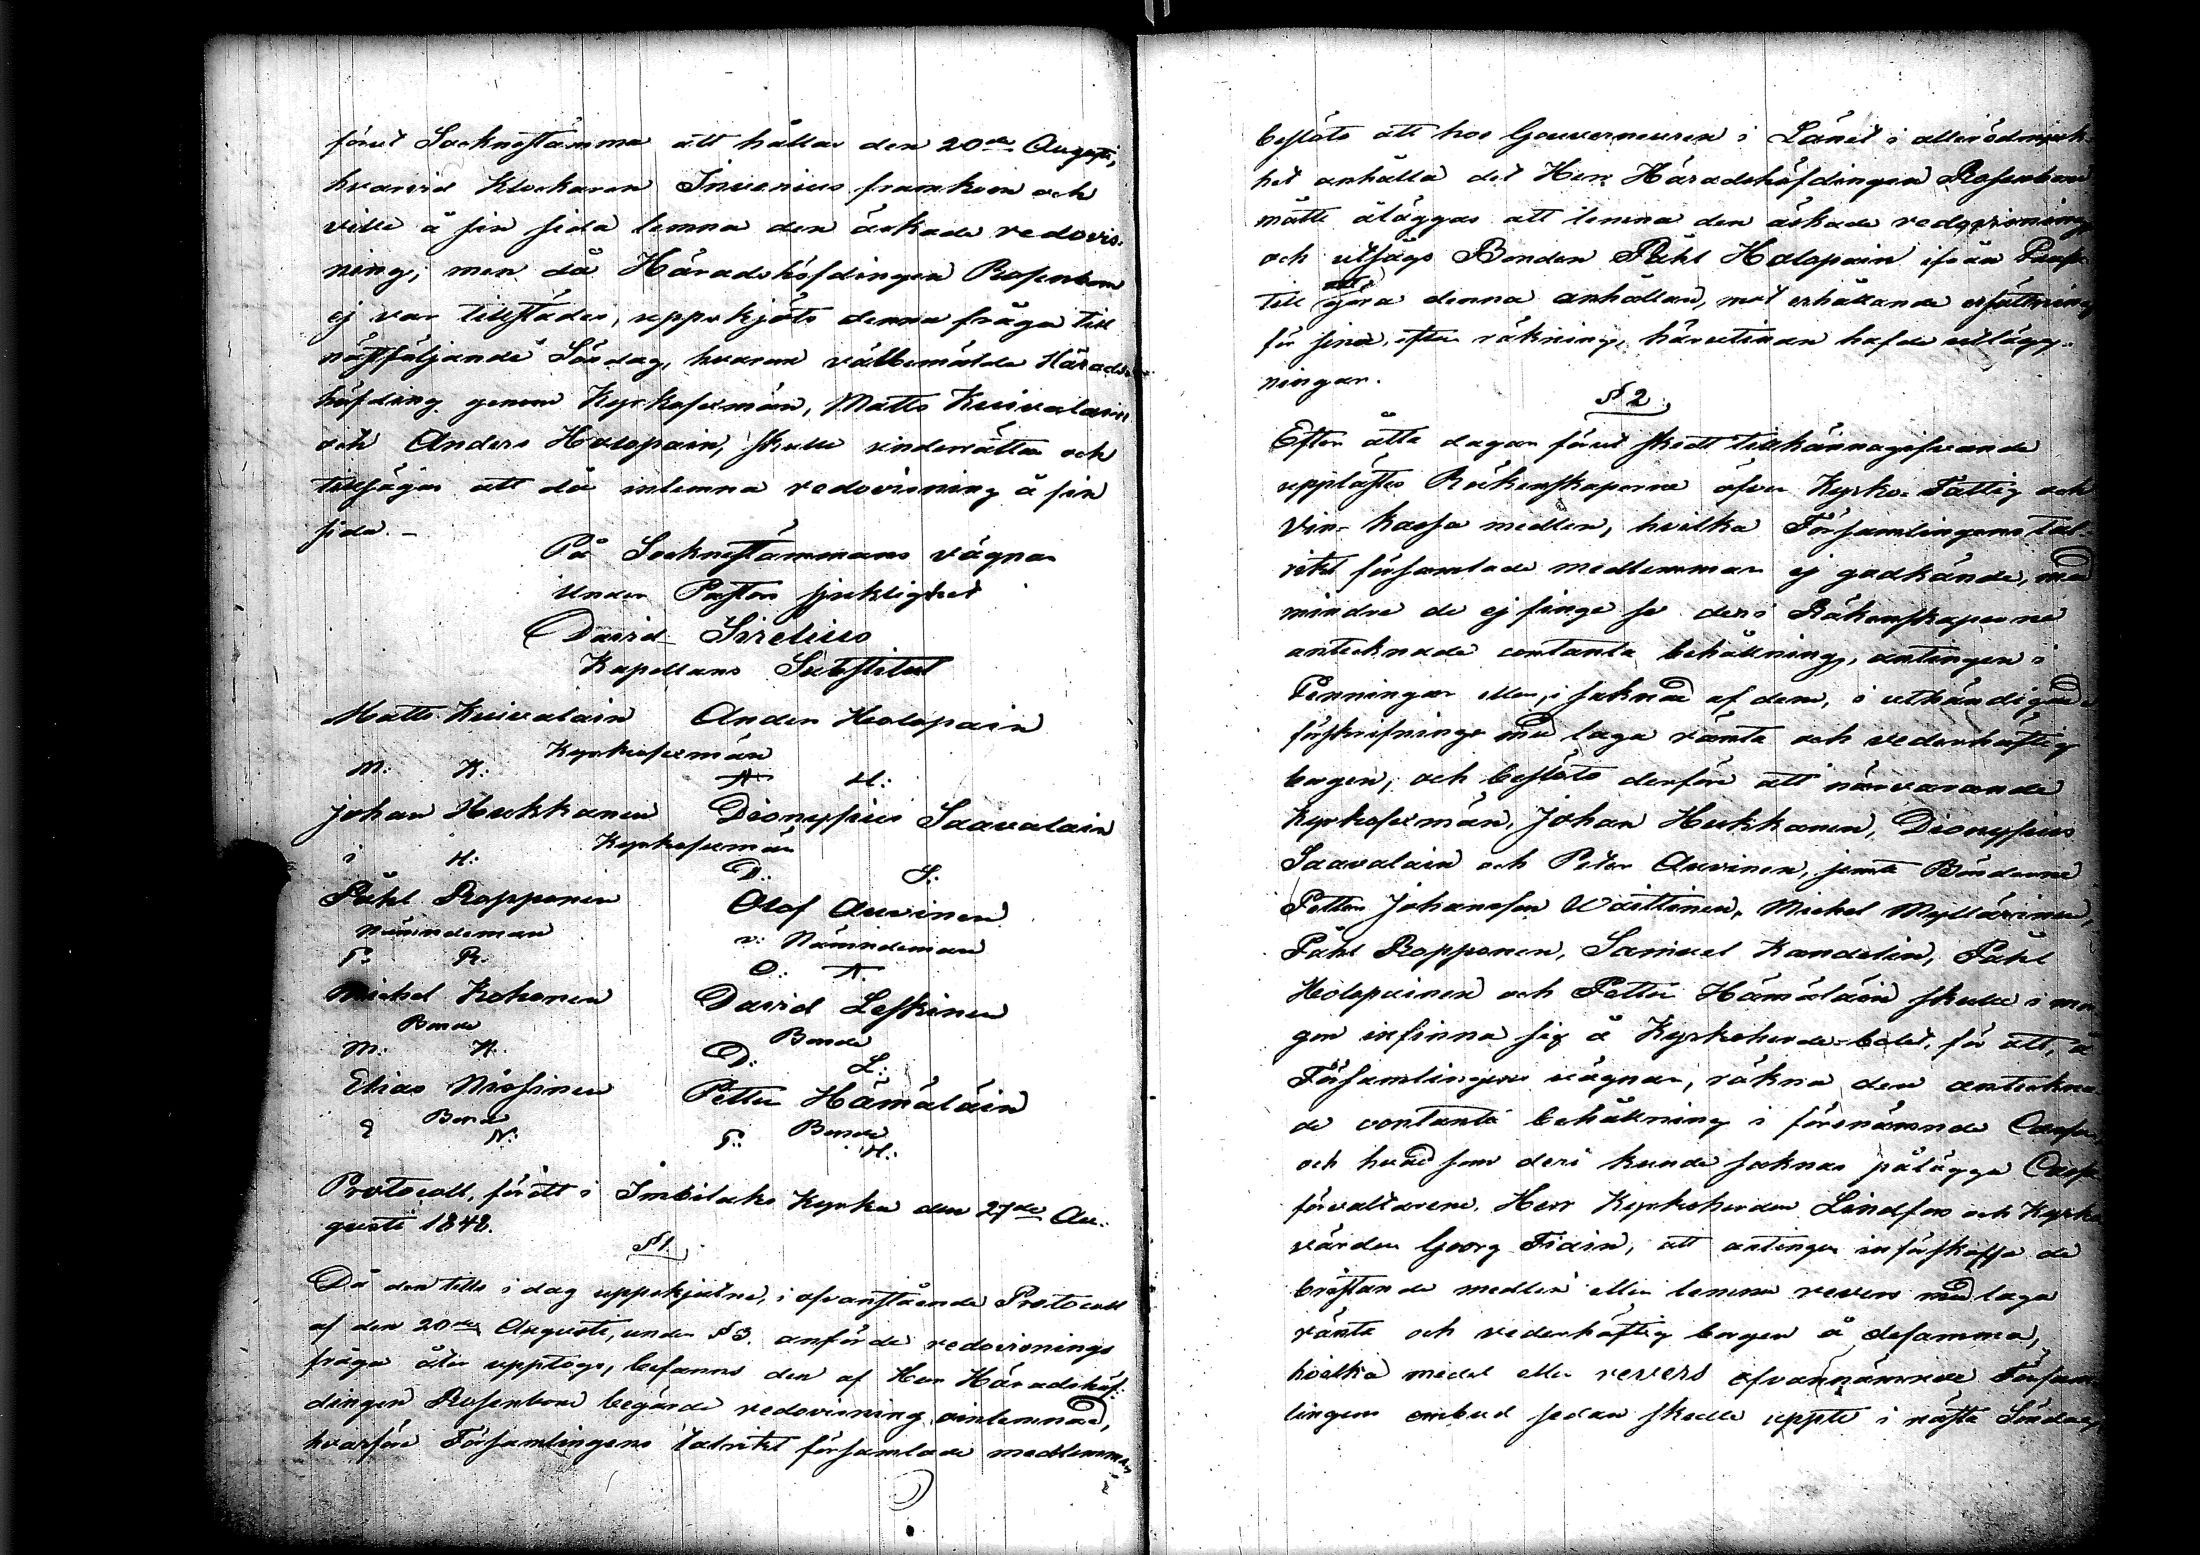 förut Socknestämma att hållas den 20de Augusti,
hvarvid Klockaren Invenius framkom och
ville å sin sida lemna den äskade redovis-
ning; men då Häradshöfdingen Rosenbom
ej var tillstädes, uppskjöts denna fråga till
nästföljande Söndag, hvarom välbemälde Härads-
höfding genom Kyrkosexmän, Matts Kuivalain
och Anders Holopain, skulle underrättas och
tillsägas att då inlemna redovisning å sin
sida.-
På Socknestämmans vägnar
Under Pastors sjuklighet
David Sirelius
Kapellans Substitut
Matts Kuivalain Anders Holopain
Kyrkosexmän
M: K: A: H:
Johan Hukkanen Dionysius Saavalain
Kyrkosexmän
i H: D: S:
Påhl Ropponen Olof Auvinen
Nämndeman v: Nämndeman
P: R. O: A.
Michel Kokonen David Leskinen
Bonde Bonde
M: K. D: L:
Elias Nissinen Petter Hämäläin
Bonde Bonde
E N: P: H:
Protocoll, fördt i Imbilaks Kyrka den 27de Au-
gusti 1848.
§ 1.
Då den tills i dag uppskjutne, i ofvanstående Protocoll
af den 20de Augusti, under § 3. anförde redovisnings
fråga åter upptogs, befanns den af Herr Häradshöf-
dingen Rosenbom begärde redovisning oinlemnad,
hvarföre Församlingens talrikt församlade medlemmar
beslöts att hos Gouverneuren i Länet i allerödmjuk-
het anhålla det Herr Häradshöfdingen Rosenbom
måtte åläggas att lemna den äskade redovisning
och utsågs Bonden Påhl Holopain ifrån
att
till göra denna anhållan, mot erhållande ersättning
för sina, efter räkning, härutinnan hafde utlägg-
ningar.
§ 2.
Efter åtta dagar förut skedt tillkännagifvande
upplästes Räkenskaperne öfver Kyrko- Fattig och
Vin- kassa medlen, hvilka Församlingens tal-
rikt församlade medlemmar ej godkände, med
mindre de ej finge se deri Räkenskaperne
antecknade contanta behållning, antingen i
Penningar eller, i saknad af dem, i uthändigade
förskrifningar med laga ränta och vederhäftig
borgen; och beslöts derföre att närvarande
Kyrkosexmän, Johan Hukkanen, Dionysius
Saavalain och Peter Auvinen, jemte Bönderne
Petter Johansson Wäittinen, Michel Myllärinen,
Påhl Ropponen, Samuel Kandolin, Påhl
Holopainen och Petter Hämäläin skulle i mor-
gon infinna sig å Kyrkoherde-bolet, för att, å
Församlingens vägnar, räkna den anteckna-
de contanta behållning i förenämnde Cassor
och hvad som deri kunde saknas pålägga Cass-
förvaltarene, Herr Kyrkoherden Lindfors och Kyrko-
värden Georg Tiain, att antingen införskaffa de
bristande medlen eller lemna revers med laga
ränta och vederhäftig borgen å desamma,
hvilka medel eller revers ofvannämnde Försam-
lingens ombud sedan skulle uppte i nästa Söndag